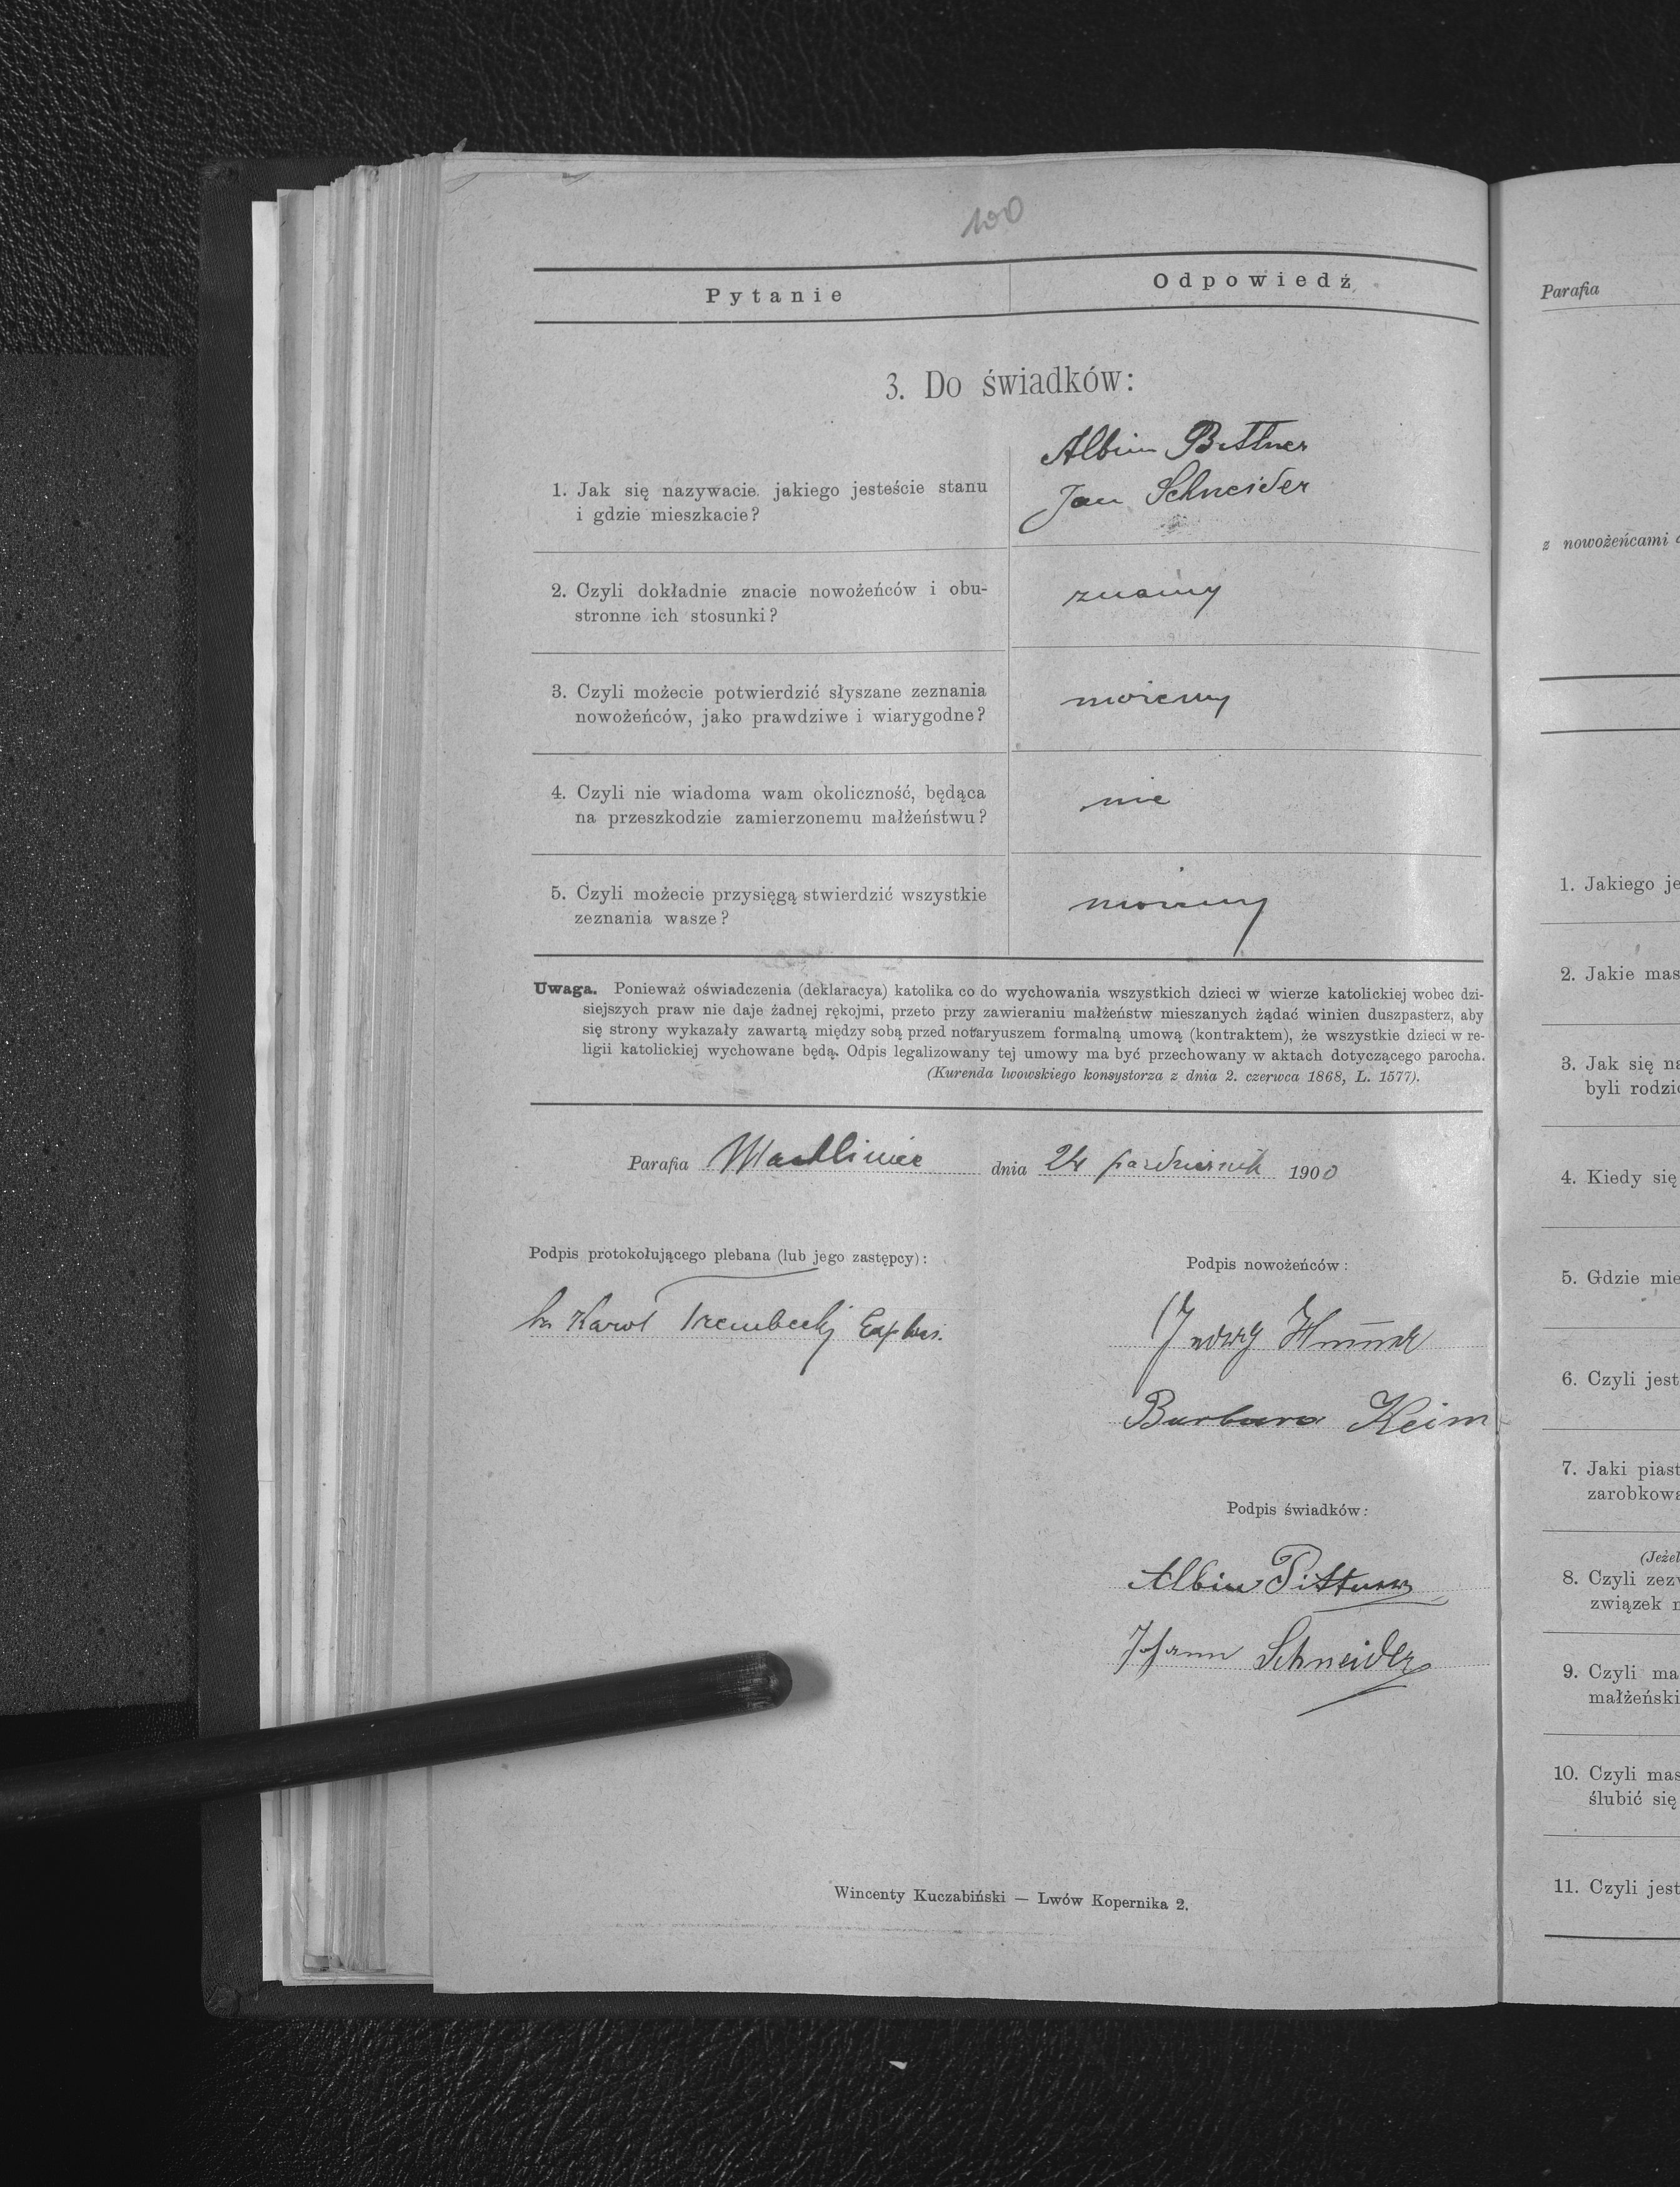 100
Pytanie
Odpowiedź
3. Do świadków:
Albin Bittner
Jan Schneider
1. Jak się nazywacie. jakiego jesteście stanu
i gdzie mieszkacie?
2. Czyli dokładnie znacie nowożeńców i obu-
stronne ich stosunki?
znamy
3. Czyli możecie potwierdzić słyszane zeznania
nowożeńców, jako prawdziwe i wiarygodne?
możemy
4. Czyli nie wiadoma wam okoliczność, będąca
na przeszkodzie zamierzonemu małżeństwu?
nie
5. Czyli możecie przysięgą stwierdzić wszystkie
zeznania wasze?
możemy
Uwaga. Ponieważ oświadczenia (deklaracya) katolika co do wychowania wszystkich dzieci w wierze katolickiej wobec dzi-
siejszych praw nie daje żadnej rękojmi, przeto przy zawieraniu małżeństw mieszanych żądać winien duszpasterz, aby
się strony wykazały zawartą między sobą przed notaryuszem formalną umową (kontraktem), że wszystkie dzieci w re-
ligii katolickiej wychowane będą. Odpis legalizowany tej umowy ma być przechowany w aktach dotyczącego parocha.
(Kurenda lwowskiego konsystorza z dnia 2. czerwca 1868, L. 1577).
Parafia Machliniec dnia 24 październik 1900
Podpis protokołującego plebana (lub jego zastępcy):
Podpis nowożeńców:
Karol Trembecki
Barbara Keim
Podpis świadków:
Albin Pittner
Johann Schneider
Wincenty Kuczabiński — Lwów Kopernika 2.
Parafia
z nowożeńcami
1. Jakiego je
2. Jakie mas
3. Jak się na
byli rodzi
4. Kiedy się
5. Gdzie mie
6. Czyli jest
7. Jaki piast
zarobkowa
(Jeżel
8. Czyli zez
związek
9. Czyli ma
małżeński
10. Czyli mas
ślubić się
11. Czyli jest